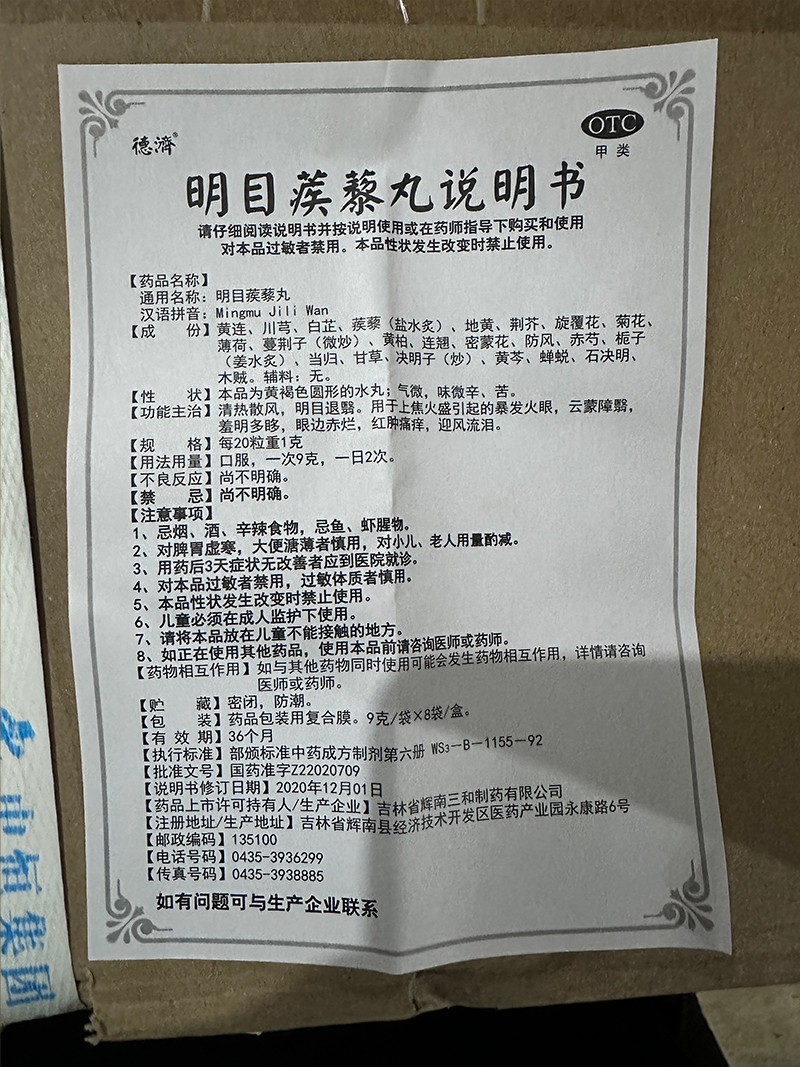 德濟®
OTC
甲类
明目蒺藜丸说明书
请仔细阅读说明书并按说明使用或在药师指导下购买和使用
对本品过敏者禁用。本品性状发生改变时禁止使用。
【药品名称】
通用名称：明目蒺藜丸
汉语拼音：Mingmu Jili Wan
【成　　份】黄连、川芎、白芷、蒺藜（盐水炙）、地黄、荆芥、旋覆花、菊花、
薄荷、蔓荆子（微炒）、黄柏、连翘、密蒙花、防风、赤芍、栀子
（姜水炙）、当归、甘草、决明子（炒）、黄芩、蝉蜕、石决明、
木贼。辅料：无。
【性　　状】本品为黄褐色圆形的水丸；气微，味微辛、苦。
【功能主治】清热散风，明目退翳。用于上焦火盛引起的暴发火眼，云蒙障翳，
羞明多眵，眼边赤烂，红肿痛痒，迎风流泪。
【规　　格】每20粒重1克
【用法用量】口服，一次9克，一日2次。
【不良反应】尚不明确。
【禁　　忌】尚不明确。
【注意事项】
1、忌烟、酒、辛辣食物，忌鱼、虾腥物。
2、对脾胃虚寒，大便溏薄者慎用，对小儿、老人用量酌减。
3、用药后3天症状无改善者应到医院就诊。
4、对本品过敏者禁用，过敏体质者慎用。
5、本品性状发生改变时禁止使用。
6、儿童必须在成人监护下使用。
7、请将本品放在儿童不能接触的地方。
8、如正在使用其他药品，使用本品前请咨询医师或药师。
【药物相互作用】如与其他药物同时使用可能会发生药物相互作用，详情请咨询
医师或药师。
【贮　　藏】密闭，防潮。
【包　　装】药品包装用复合膜。9克/袋×8袋/盒。
【有 效 期】36个月
【执行标准】部颁标准中药成方制剂第六册 WS₃－B－1155－92
【批准文号】国药准字Z22020709
【说明书修订日期】2020年12月01日
【药品上市许可持有人/生产企业】吉林省辉南三和制药有限公司
【注册地址/生产地址】吉林省辉南县经济技术开发区医药产业园永康路6号
【邮政编码】135100
【电话号码】0435-3936299
【传真号码】0435-3938885
如有问题可与生产企业联系
恒集团